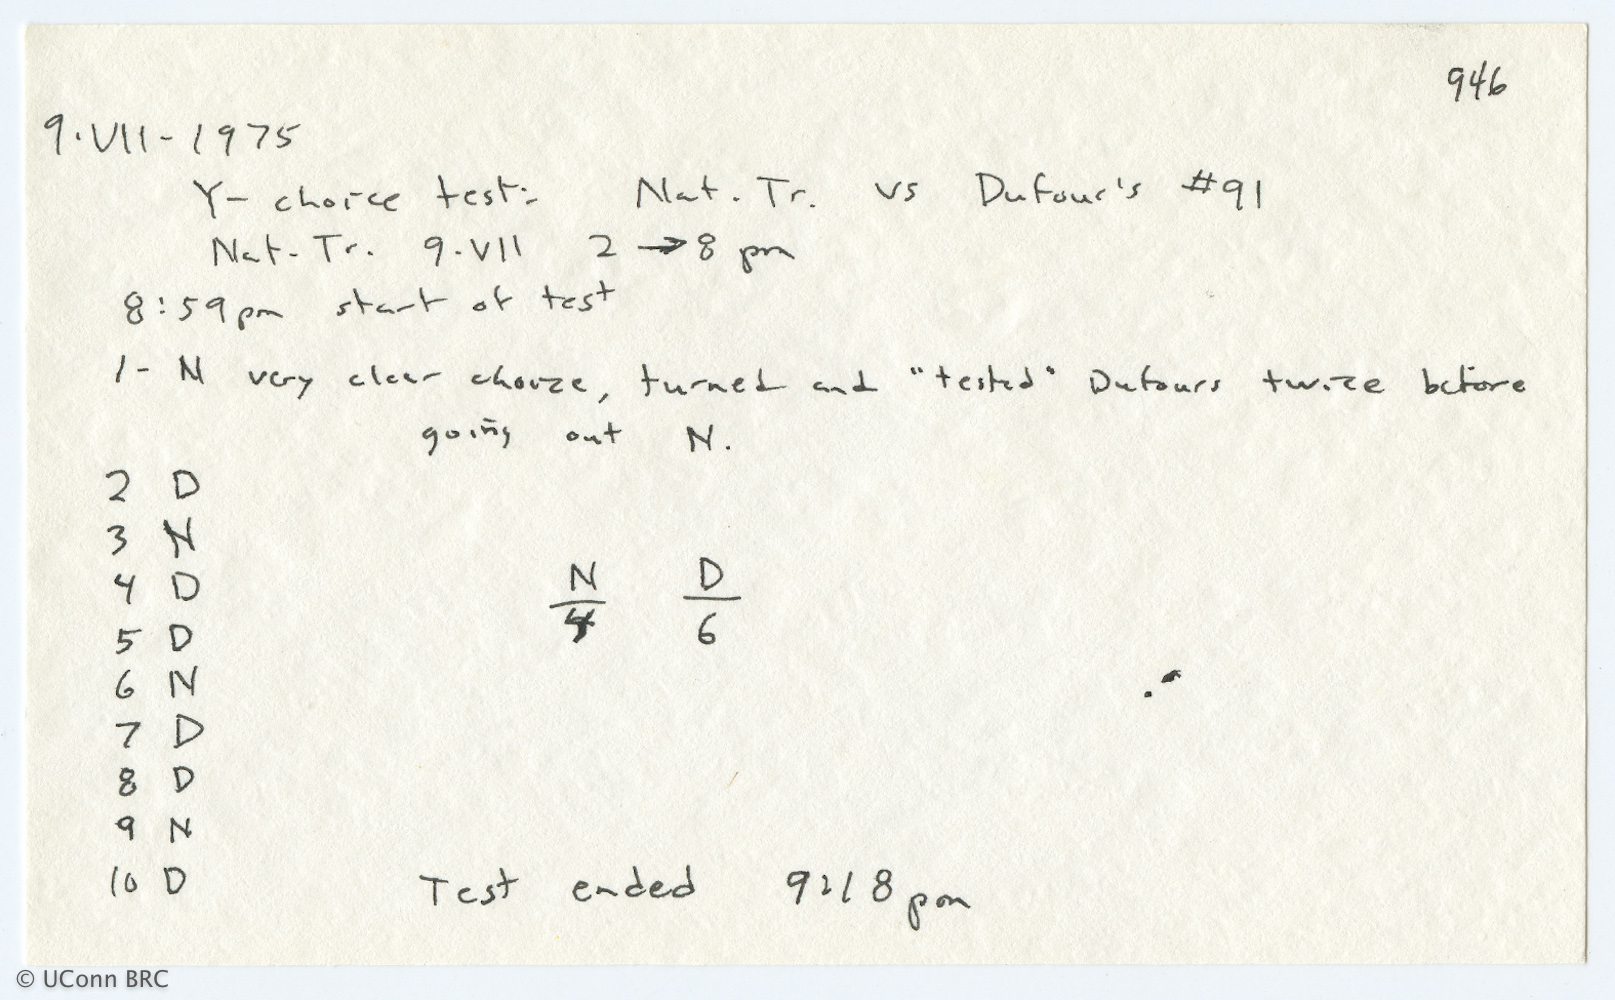 946
9.VII-1975
Y-choice test: Nat. Tr. vs Dufour's #91
Nat. Tr. 9.VII 2 → 8 pm
8:59pm start of test
1- N very clear choice, turned and "tested" Dufours twice before
going out N.
2 D
3 N
4 D
5 D
6 N
7 D
8 D
9 N
10 D
N D
4 6
Test ended 9:18 pm
© UConn BRC